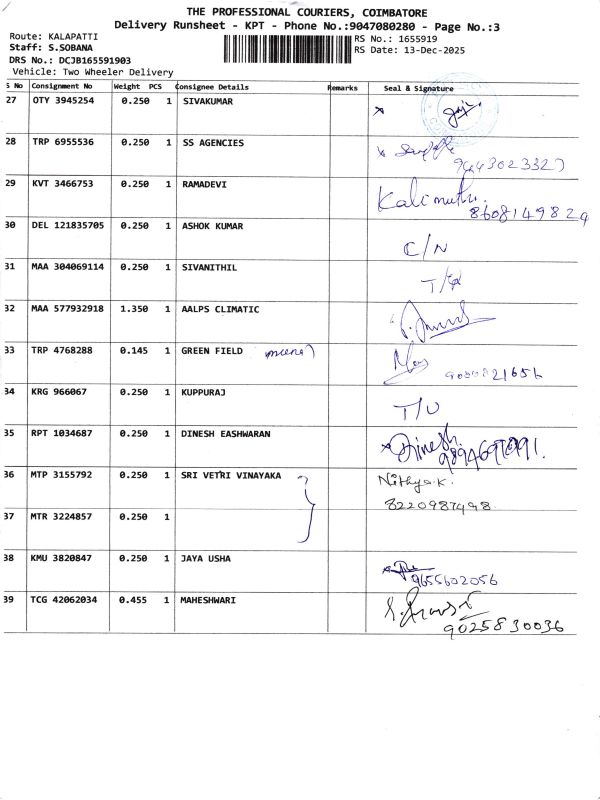 THE PROFESSIONAL COURIERS, COIMBATORE
Delivery Runsheet - KPT - Phone No.:9047080280 - Page No.:3
Route: KALAPATTI
RS No.: 1655919
Staff: S.SOBANA
RS Date: 13-Dec-2025
DRS No.: DCJB165591903
Vehicle: Two Wheeler Delivery
S No Consignment No Weight PCS Consignee Details Remarks Seal & Signature
27 OTY 3945254 0.250 1 SIVAKUMAR
28 TRP 6955536 0.250 1 SS AGENCIES
9443023327
29 KVT 3466753 0.250 1 RAMADEVI Kalimuthu
8608149829
30 DEL 121835705 0.250 1 ASHOK KUMAR C/N
31 MAA 304069114 0.250 1 SIVANITHIL
32 MAA 577932918 1.350 1 AALPS CLIMATIC
33 TRP 4768288 0.145 1 GREEN FIELD
34 KRG 966067 0.250 1 KUPPURAJ T/U
35 RPT 1034687 0.250 1 DINESH EASHWARAN Dinesh
36 MTP 3155792 0.250 1 SRI VETRI VINAYAKA Nithya.K.
8220987498
37 MTR 3224857 0.250 1
38 KMU 3820847 0.250 1 JAYA USHA
9655602056
39 TCG 42062034 0.455 1 MAHESHWARI
9025830036